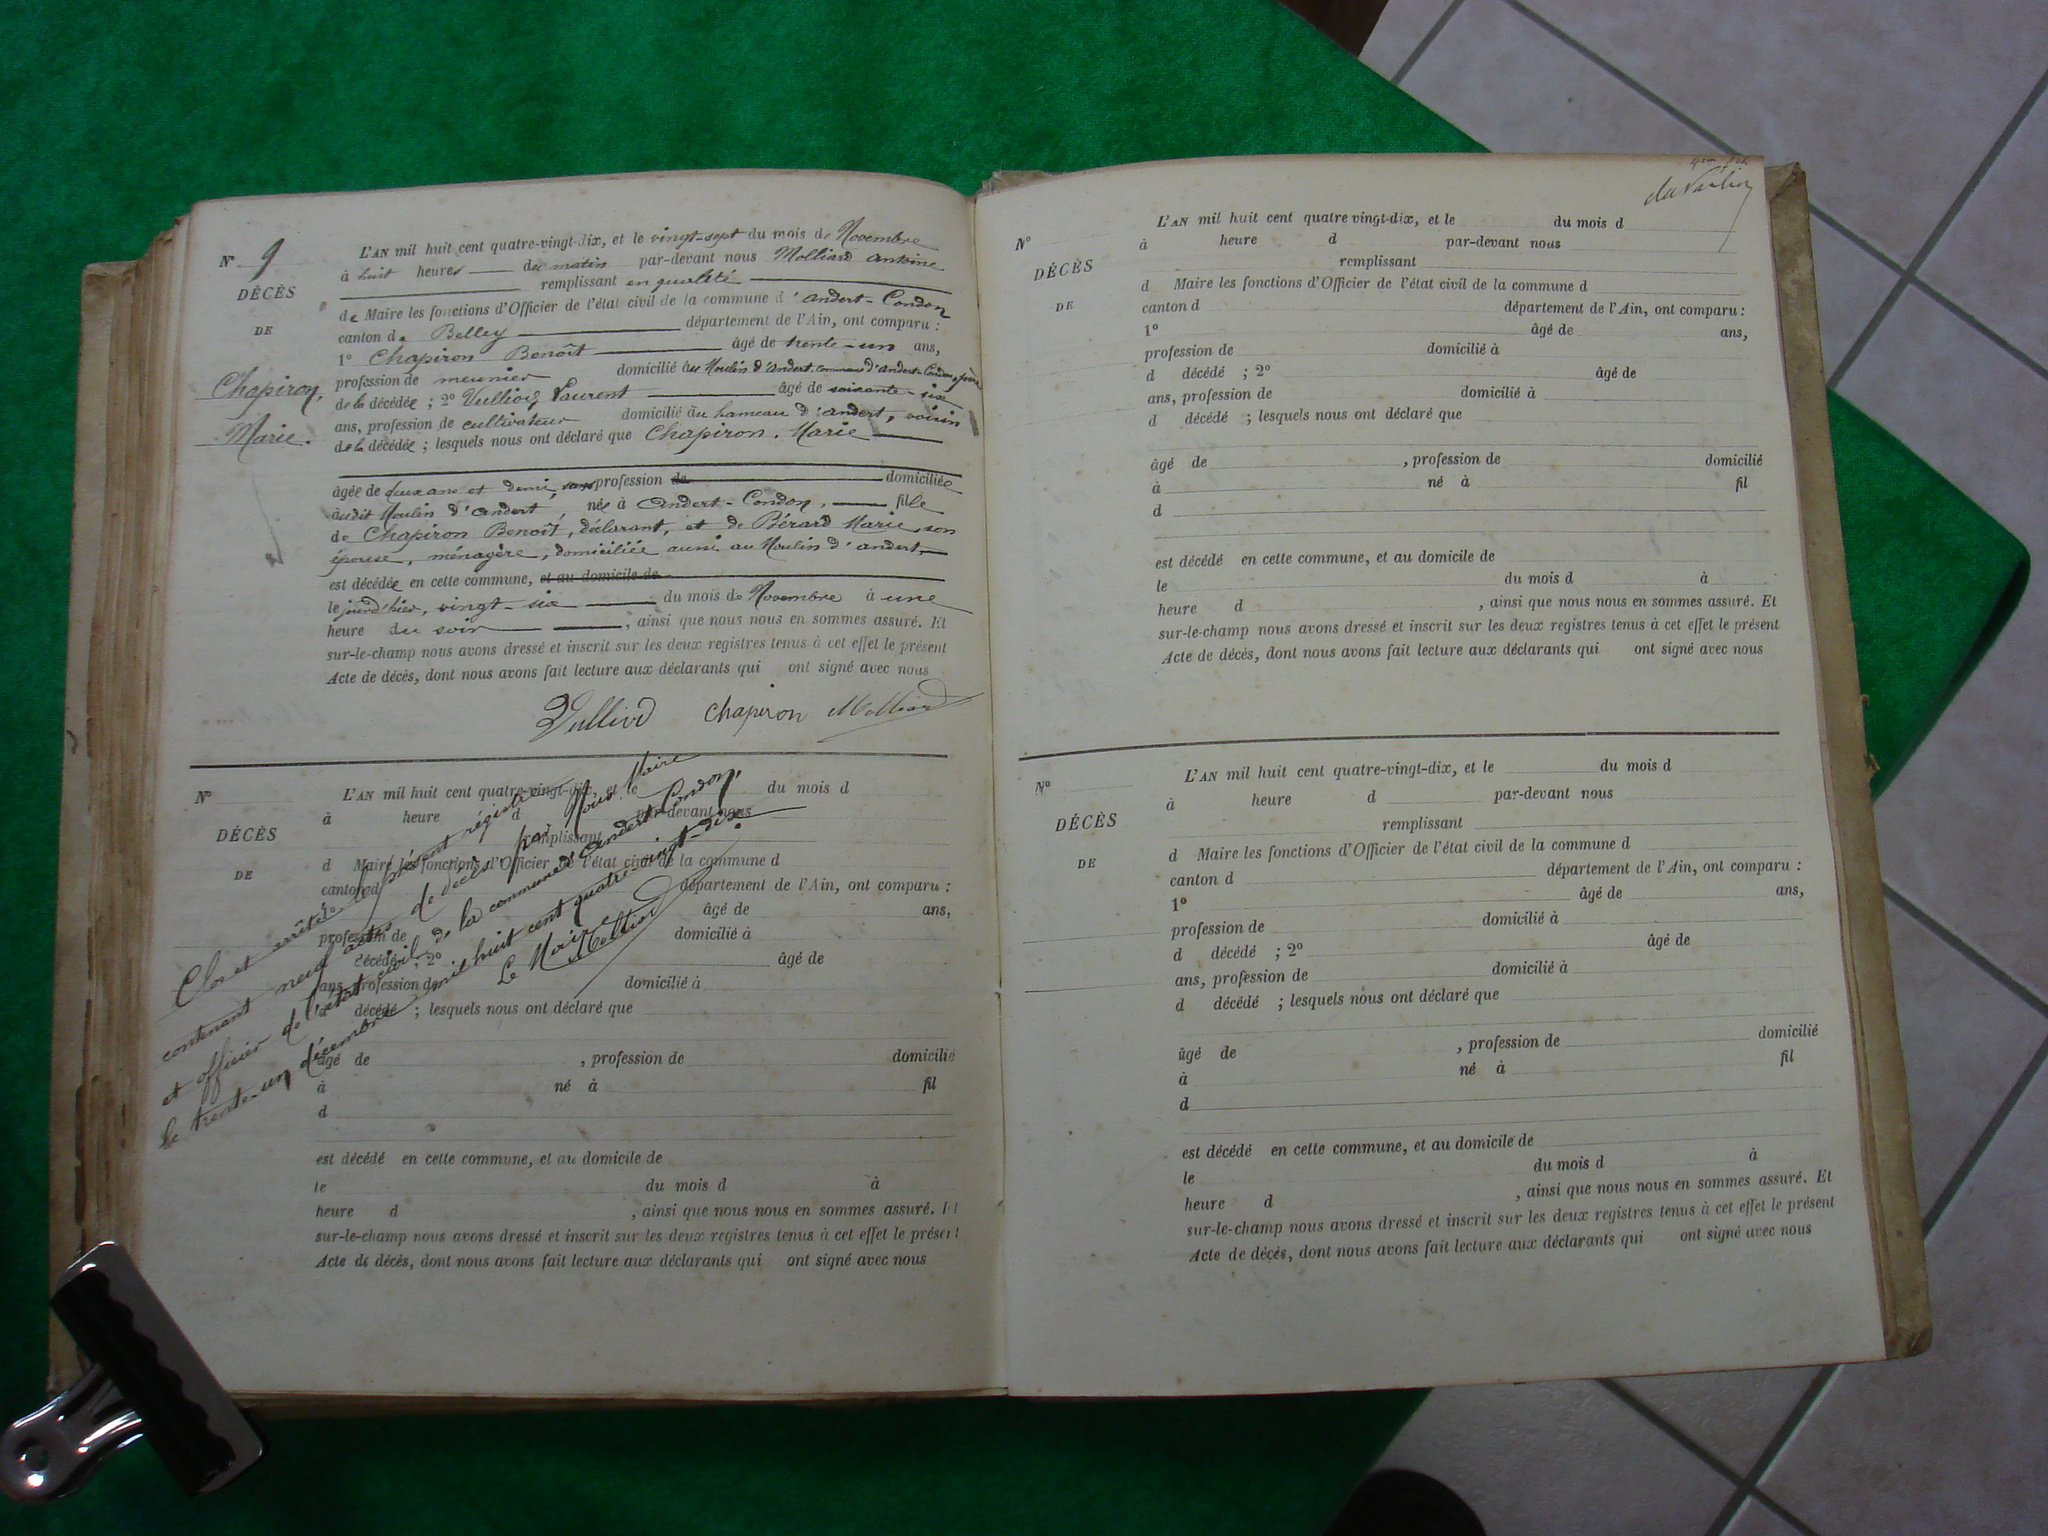 N° 9
DÉCÈS
DE
Chapiron,
Marie.
L'AN mil huit cent quatre-vingt-dix, et le vingt-sept du mois de Novembre
à huit heures du matin par-devant nous Molliard Antoine
remplissant en qualité
de Maire les fonctions d'Officier de l'état civil de la commune d'Andert-Condon
canton de Belley département de l'Ain, ont comparu :
1° Chapiron Benoît âgé de trente-un ans,
profession de meunier domicilié au Moulin d'Andert commune d'Andert-Condon, père
de la décédée ; 2° Laurent âgé de soixante-six
ans, profession de cultivateur domicilié au hameau d'Andert, voisin
de la décédée ; lesquels nous ont déclaré que Chapiron, Marie
âgée de deux ans et demi, sans profession de domiciliée
audit Moulin d'Andert, née à Andert-Condon, fille
de Chapiron Benoît, déclarant, et de Bérard Marie, son
épouse, ménagère, domiciliée aussi au Moulin d'Andert,
est décédée en cette commune, et au domicile de
le jourd'hier, vingt-six du mois de Novembre à une
heure du soir, ainsi que nous nous en sommes assuré. Et
sur-le-champ nous avons dressé et inscrit sur les deux registres tenus à cet effet le présent
Acte de décès, dont nous avons fait lecture aux déclarants qui ont signé avec nous
Chapiron Molliard
N°
DÉCÈS
DE
L'AN mil huit cent quatre-vingt-dix, et le du mois d
à heure d par-devant nous
remplissant
d Maire les fonctions d'Officier de l'état civil de la commune d
canton d département de l'Ain, ont comparu :
1° âgé de ans,
profession de domicilié à
d décédé ; 2° âgé de
ans, profession de domicilié à
d décédé ; lesquels nous ont déclaré que
âgé de , profession de domicilié
à né à fil
d
est décédé en cette commune, et au domicile de
le du mois d à
heure d , ainsi que nous nous en sommes assuré. Et
sur-le-champ nous avons dressé et inscrit sur les deux registres tenus à cet effet le présent
Acte de décès, dont nous avons fait lecture aux déclarants qui ont signé avec nous
Clos et arrêté le présent régistre
contenant neuf actes de décès, par Nous Maire
et officier de l'état civil de la commune d'Andert-Condon,
le trente-un décembre mil huit cent quatre-vingt-dix.
Le Maire
Molliard
N°
DÉCÈS
DE
L'AN mil huit cent quatre vingt-dix, et le du mois d
à heure d par-devant nous
remplissant
d Maire les fonctions d'Officier de l'état civil de la commune d
canton d département de l'Ain, ont comparu :
1° âgé de ans,
profession de domicilié à
d décédé ; 2° âgé de
ans, profession de domicilié à
d décédé ; lesquels nous ont déclaré que
âgé de , profession de domicilié
à né à fil
d
est décédé en cette commune, et au domicile de
le du mois d à
heure d , ainsi que nous nous en sommes assuré. Et
sur-le-champ nous avons dressé et inscrit sur les deux registres tenus à cet effet le présent
Acte de décès, dont nous avons fait lecture aux déclarants qui ont signé avec nous
N°
DÉCÈS
DE
L'AN mil huit cent quatre-vingt-dix, et le du mois d
à heure d par-devant nous
remplissant
d Maire les fonctions d'Officier de l'état civil de la commune d
canton d département de l'Ain, ont comparu :
1° âgé de ans,
profession de domicilié à
d décédé ; 2° âgé de
ans, profession de domicilié à
d décédé ; lesquels nous ont déclaré que
âgé de , profession de domicilié
à né à fil
d
est décédé en cette commune, et au domicile de
le du mois d à
heure d , ainsi que nous nous en sommes assuré. Et
sur-le-champ nous avons dressé et inscrit sur les deux registres tenus à cet effet le présent
Acte de décès, dont nous avons fait lecture aux déclarants qui ont signé avec nous